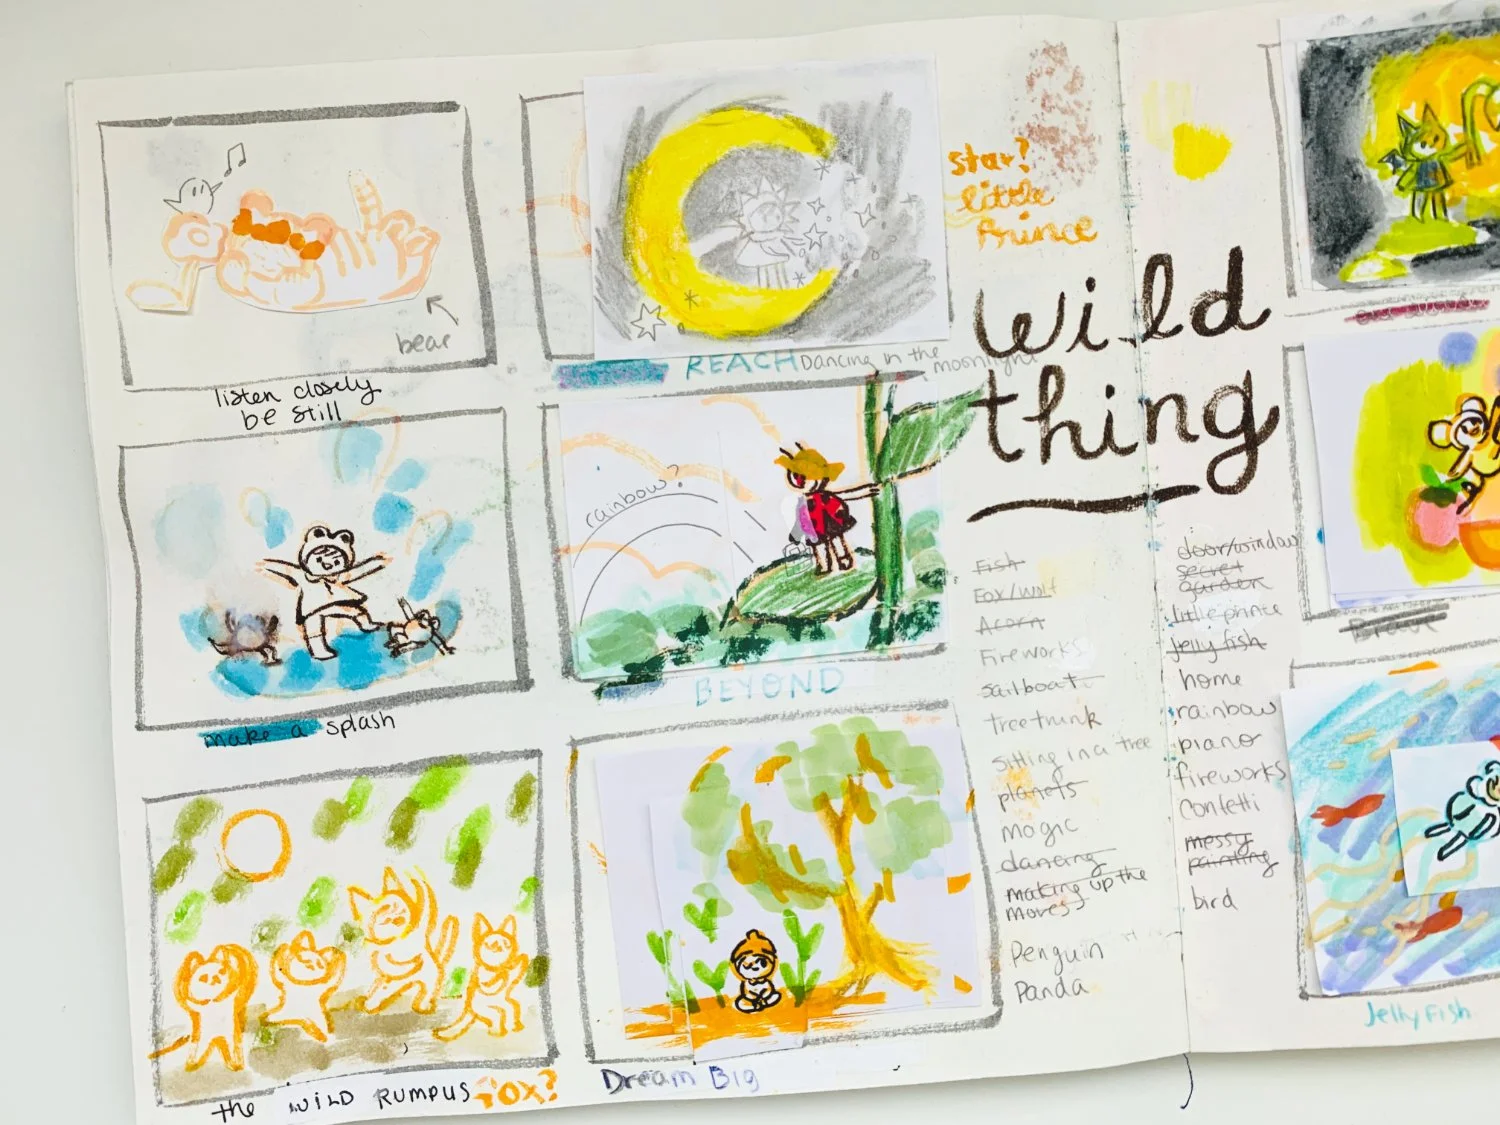 bear
listen closely
be still
make a splash
the WILD RUMPUS FOX?
REACH Dancing in the
moonlight
rainbow?
BEYOND
Dream Big
star?
little
Prince
wild
thing
Fish
Fox/wolf
Acorn
Fireworks
sailboat
treetrunk
sitting in a tree
planets
magic
dancing
making up the
moves
Penguin
Panda
door/window
secret
garden
little prince
Jelly fish
home
rainbow
piano
fireworks
confetti
messy
painting
bird
Brave
Jelly Fish